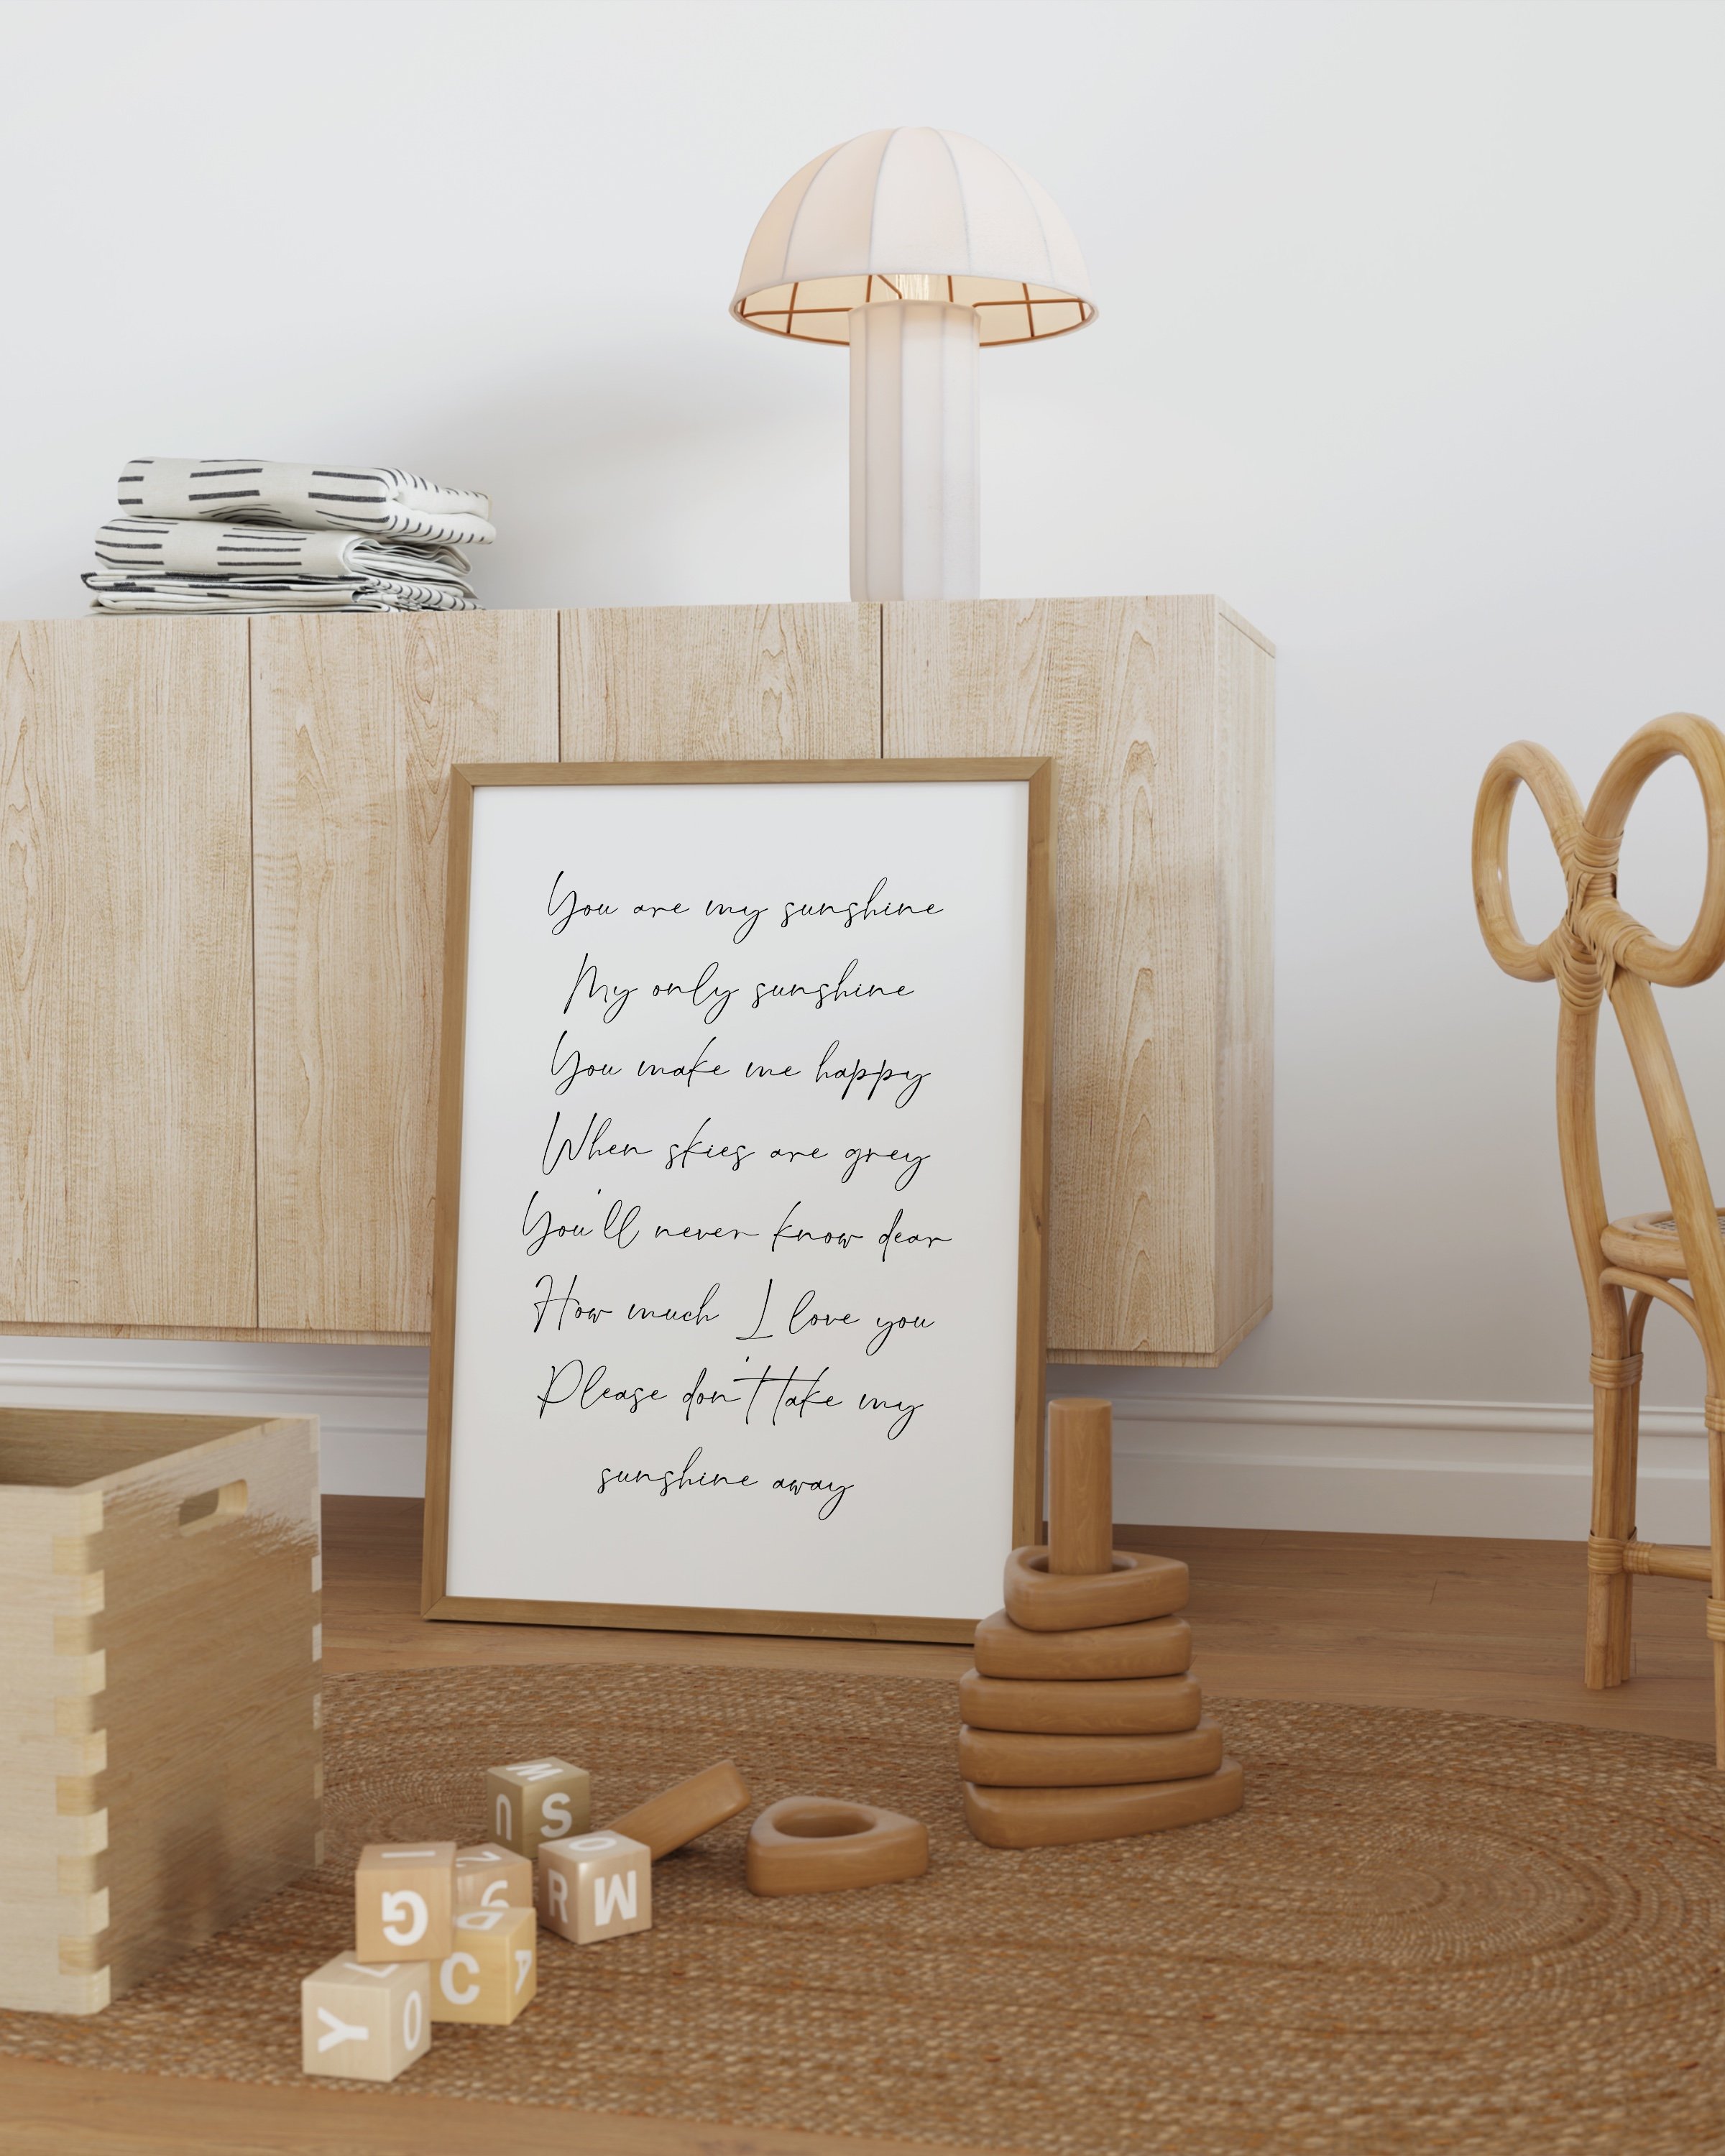 You are my sunshine
My only sunshine
You make me happy
When skies are grey
You'll never know dear
How much I love you
Please don't take my
sunshine away
W
U S
O
R M
I
G
2
C A
Y O